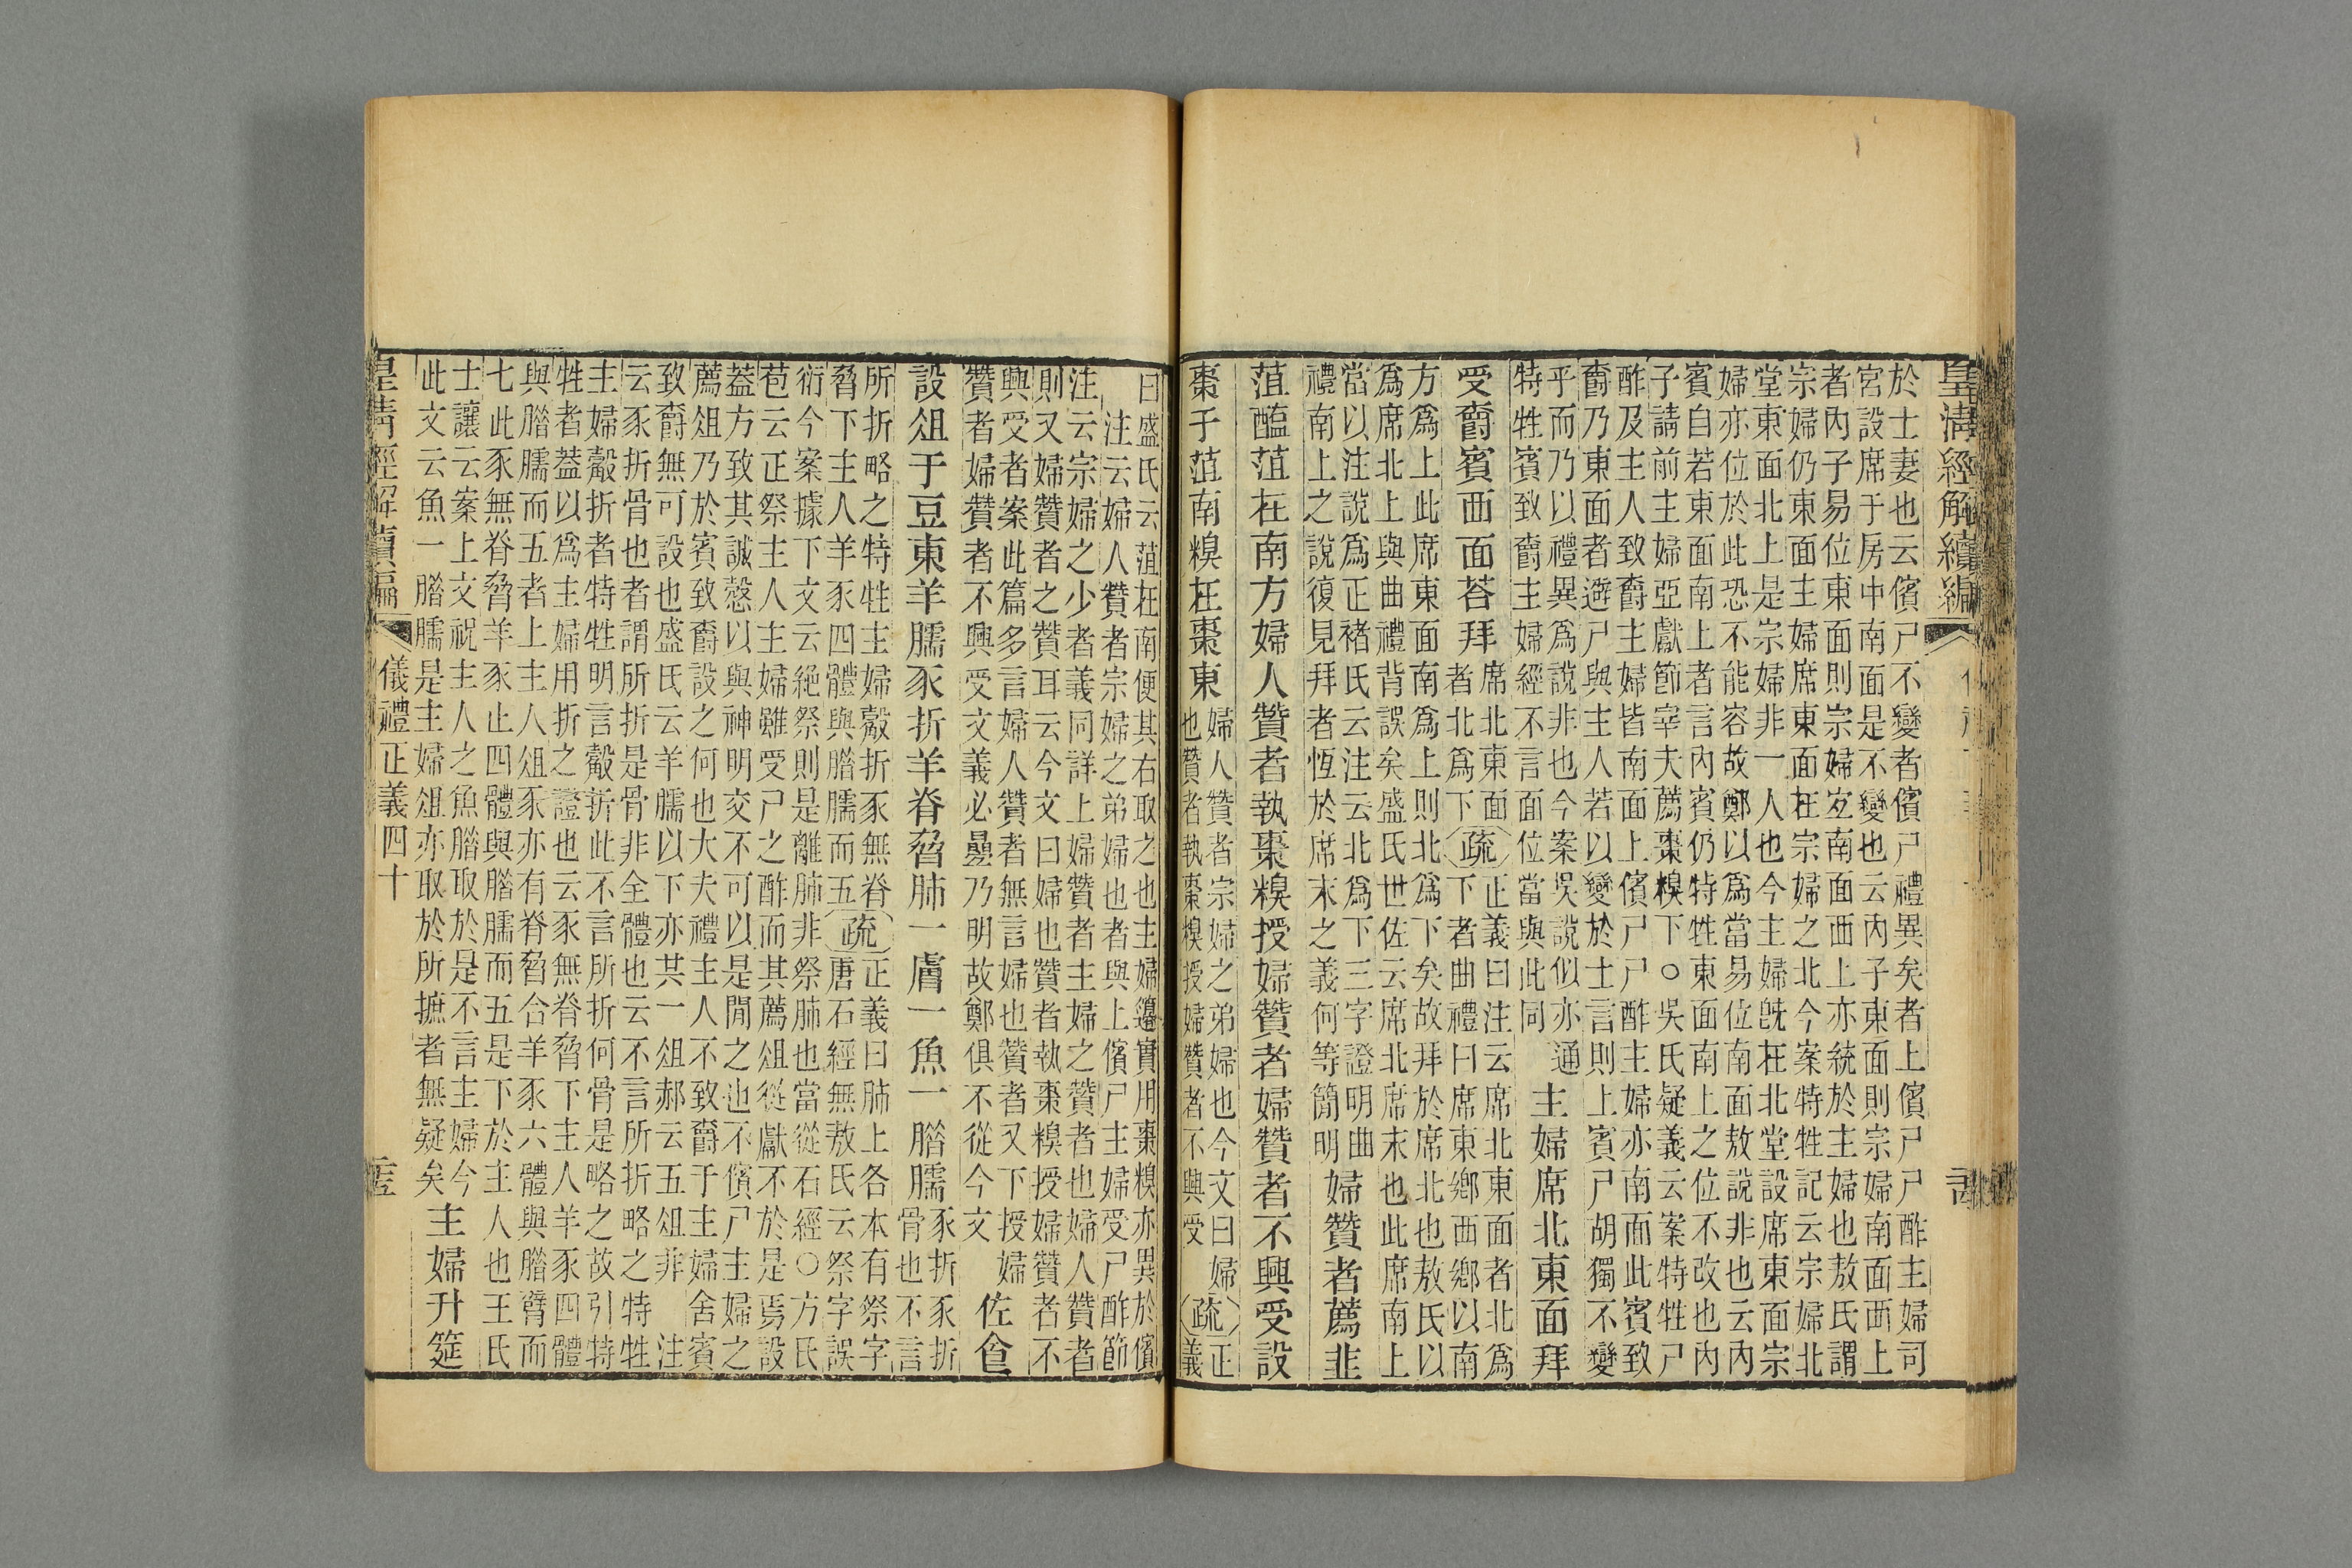 皇淸經解續編
於士妻也云儐尸不變者儐尸禮異矣者上儐尸尸酢主婦可
宮設席于房中南面是不變也云內子東面則宗婦南面西上
者內子易位東面則宗婦宐南面西上亦統於主婦也敖氏謂
宗婦仍東面主婦席東面在宗婦之北今案特牲記云宗婦北
堂東面北上是宗婦非一人也今主婦旣在北堂設席東面宗
婦亦位於此恐不能容故鄭以爲當易位南面敖說非也云內
賓自若東面南上者言內賓仍特牲東面南上之位不改也內
子請前主婦亞獻節宰夫薦棗糗下○吳氏疑義云案特牲尸
酢及主人致爵主婦皆南面上儐尸尸酢主婦亦南面此賓致
爵乃東面者遊尸與主人若以變於士言則上賓尸胡獨不變
乎而乃以禮異爲說非也今案吳說似亦通
特牲賓致爵主婦經不言面位當與此同
主婦席北東面拜
受爵賓西面荅拜
席北東面
者北爲下
疏
正義曰注云席北東面者北爲
下者曲禮曰席東鄕西鄕以南
方爲上此席東面南爲上則北爲下矣故拜於席北也敖氏以
爲席北上與曲禮背誤矣盛氏世佐云席北席末也此席南上
當以注說爲正褚氏云注云北爲下三字證明曲
禮南上之說復見拜者恆於席末之義何等簡明
婦贊者薦韭
菹醢菹在南方婦人贊者執棗糗授婦贊者婦贊者不興受設
棗于菹南糗在棗東
婦人贊者宗婦之弟婦也今文曰婦
也贊者執棗糗授婦贊者不興受
疏
正
義
曰盛氏云菹在南便其右取之也主婦籩實用棗糗亦異於儐
注云婦人贊者宗婦之弟婦也者與上儐尸主婦受尸酢節
注云宗婦之少者義同詳上婦贊者主婦之贊者也婦人贊者
則又婦贊者之贊耳云今文曰婦也贊者執棗糗授婦贊者不
興受者案此篇多言婦人贊者無言婦也贊者又下授婦
贊者婦贊者不興受文義必曡乃明故鄭俱不從今文
佐食
設俎于豆東羊臑豕折羊脊脅肺一膚一魚一腊臑
豕折豕折
骨也不言
所折略之特牲主婦觳折豕無脊
脅下主人羊豕四體與腊臑而五
疏
正義曰肺上各本有祭字
唐石經無敖氏云祭字誤
衍今案據下文云絕祭則是離肺非祭肺也當從石經○方氏
苞云正祭主人主婦雖受尸之酢而其薦俎從獻不於是焉設
葢方致其誠慤以與神明交不可以是閒之也不儐尸主婦之
薦俎乃於賓致爵設之何也大夫禮主人不致爵于主婦舍賓
致爵無可設也盛氏云羊臑以下亦共一俎郝云五俎非 注
云豕折骨也者謂所折是骨非全體也云不言所折略之特牲
主婦觳折者特牲明言觳折此不言所折何骨是略之故引特
牲者葢以爲主婦用折之證也云豕無脊脅下主人羊豕四體
與腊臑而五者上主人俎豕亦有脊脅合羊豕六體與腊臂而
七此豕無脊脅羊豕止四體與腊臑而五是下於主人也王氏
士讓云案上文祝主人之魚腊取於是不言主婦今
此文云魚一腊臑是主婦俎亦取於所摭者無疑矣
主婦升筵
皇淸經解續編
儀禮正義四十